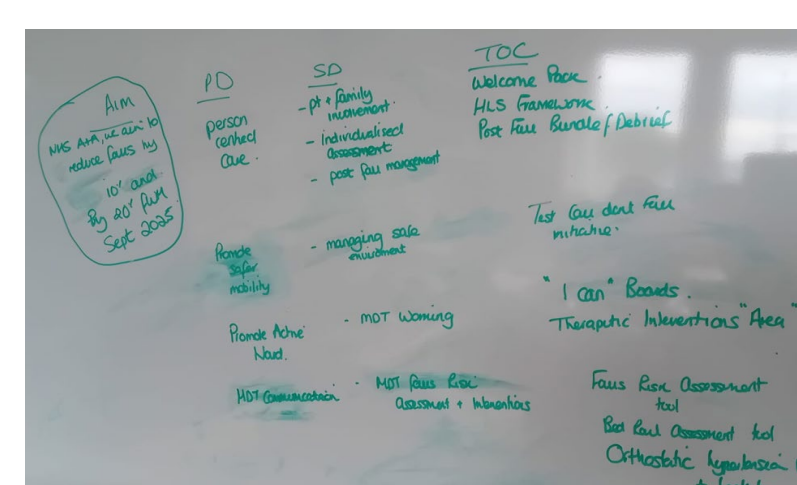 Aim
NHS A+A, we aim to
reduce falls by
10% and
by 20% FWH
Sept 2025
PD
person
centred
care.
Promote
safer
mobility
Promote Active
Ward.
MDT Communication
SD
- pt + family
involvement.
- individualised
assessment
- post fall management
- managing safe
environment
- MDT working
- MDT falls Risk
assessment + interventions
TOC
Welcome Pack.
HLS Framework.
Post Fall Bundle / Debrief
Test Call dont Fall
initiative.
"I can" Boards.
Theraputic Interventions "Area"
Falls Risk Assessment
tool
Bed Rail Assessment tool
Orthostatic